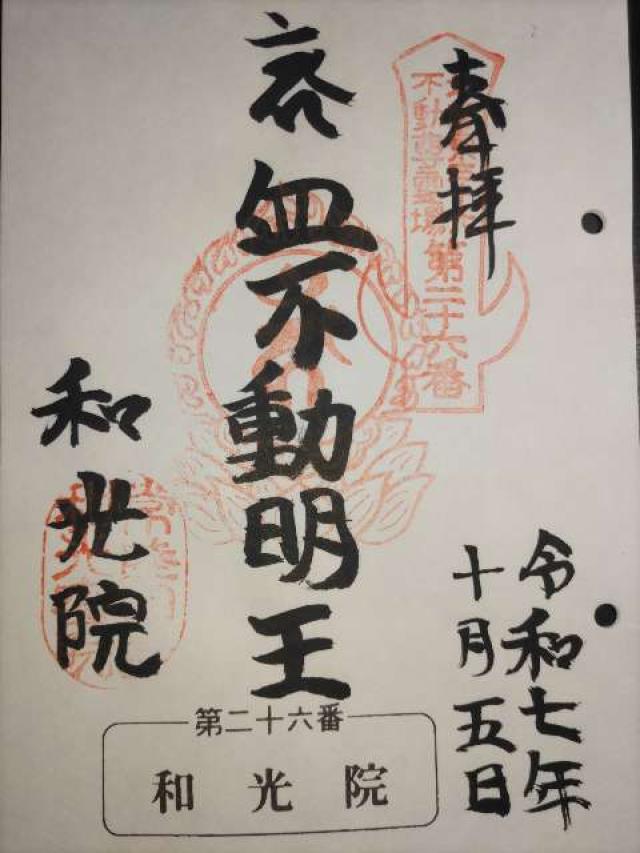 奉拝
不動尊霊場第二十六番
血不動明王
和光院
令和七年
十月五日
第二十六番
和光院